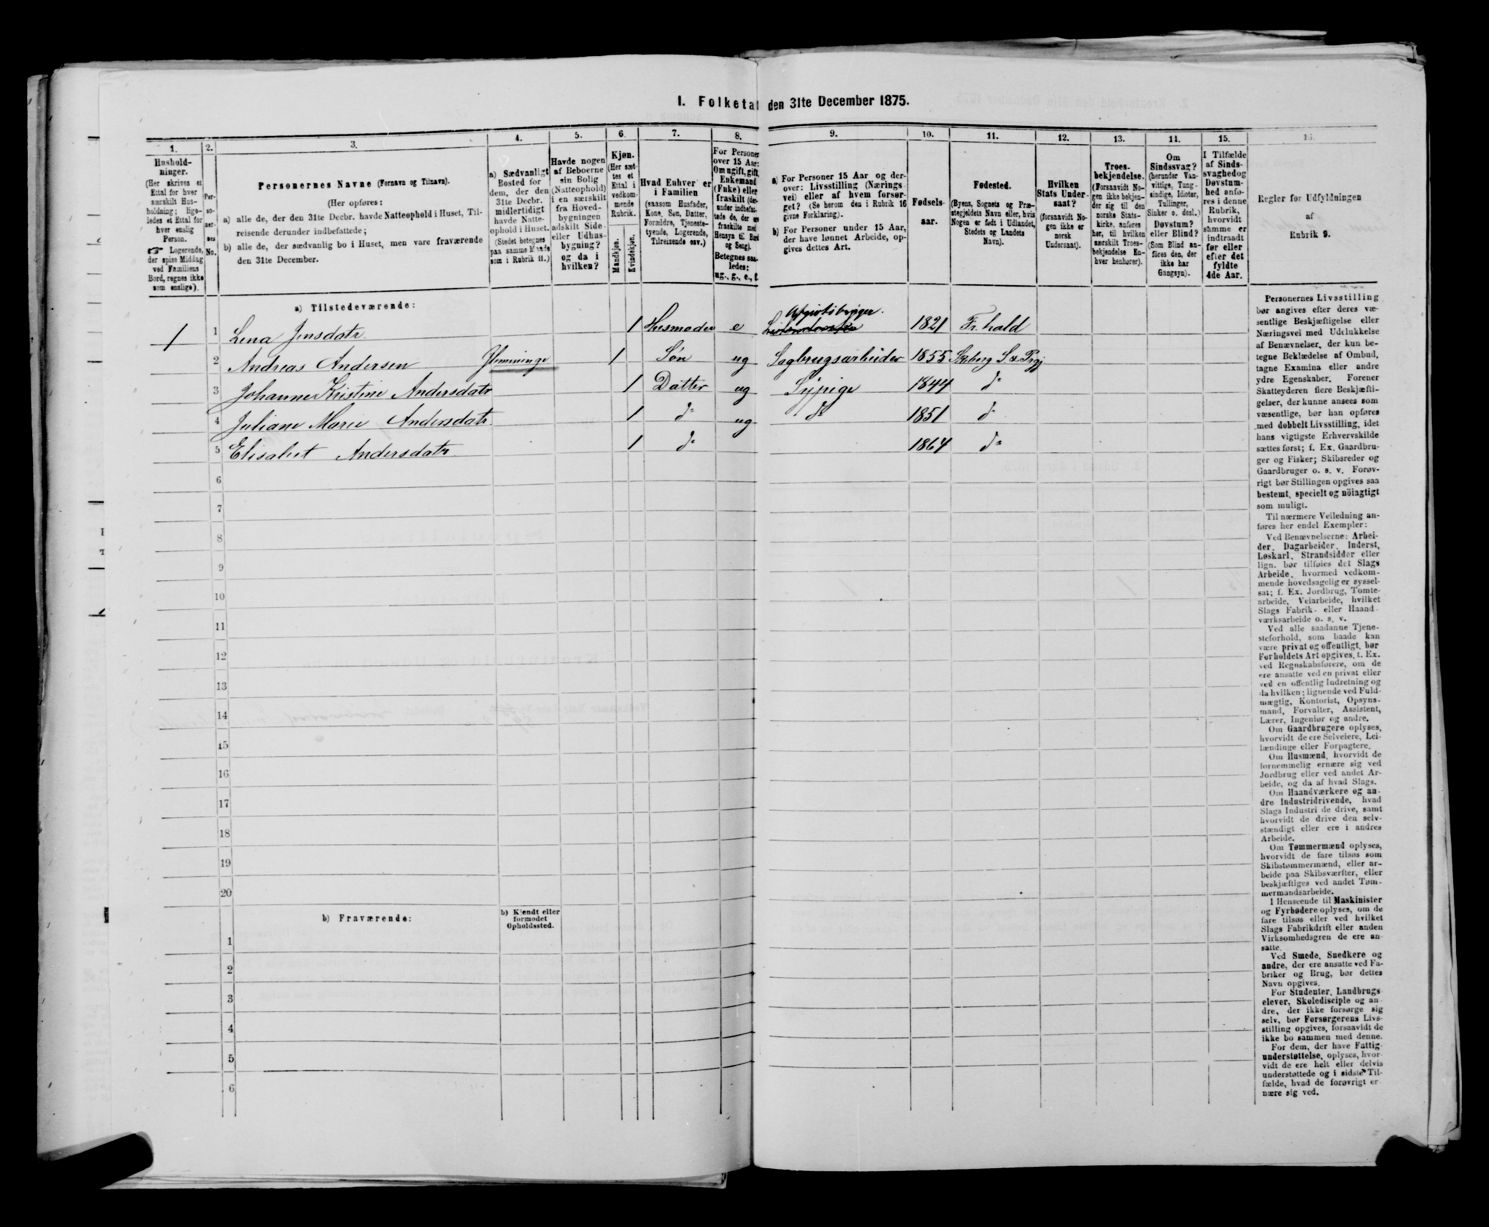 I. Folketal den 31te December 1875.
1. 2. 3. 4. 5. 6. 7. 8. 9. 10. 11. 12. 13. 14. 15. 16.
Hushold-
ninger.
(Her skrives et
Ettal for hver
særskilt Hus-
holdning; lige-
ledes et Ettal for
hver enslig
Person.
☞ Logerende,
der spise Middag
ved Familiens
Bord, regnes ikke
som enslige).
Per-
so-
ner-
nes
No.
Personernes Navne (Fornavn og Tilnavn).
(Her opføres:
a) alle de, der den 31te Decbr. havde Natteophold i Huset, Til-
reisende derunder indbefattede;
b) alle de, der sædvanlig bo i Huset, men vare fraværende
den 31te December.
a) Sædvanligt
Bosted for
dem, der den
31te Decbr.
midlertidigt
havde Natte-
ophold i Huset.
(Stedet betegnes
paa samme Maade
som i Rubrik 11.)
Havde nogen
af Beboerne
sin Bolig
(Natteophold)
i en særskilt
fra Hoved-
bygningen
adskilt Side-
eller Udhus-
bygning?
og da i
hvilken?
Kjøn.
(Her sæt-
tes et
Ettal i
vedkom-
mende
Rubrik.
Mandkjøn.
Kvindekjøn.
Hvad Enhver er
i Familien
(saasom Husfader,
Kone, Søn, Datter,
Forældre, Tjeneste-
tyende, Logerende,
Tilreisende osv.)
For Personer
over 15 Aar:
Om ugift, gift,
Enkemand
(Enke) eller
fraskilt
Betegnes saa-
ledes:
ug., g., e., f.
a) For Personer 15 Aar og der-
over: Livsstilling (Nærings-
vei) eller af hvem forsør-
get? (Se herom den i Rubrik 16
givne Forklaring).
b) For Personer under 15 Aar,
der have lønnet Arbeide, op-
gives dettes Art.
Fødsels-
aar.
Fødested.
(Byens, Sognets og Præ-
stegjeldets Navn eller, hvis
Nogen er født i Udlandet,
Stedets og Landets
Navn).
Hvilken
Stats Under-
saat?
(forsaavidt No-
gen ikke er
norsk
Undersaat).
Troes-
bekjendelse.
(Forsaavidt No-
gen ikke bekjen-
der sig til den
norske Stats-
kirke, anføres
her, til hvilken
særskilt Troes-
bekjendelse En-
hver henhører).
Om
Sindssvag?
(herunder Van-
vittige, Tung-
sindige, Idioter,
Tullinger,
Sinker o. desl.)
Døvstum?
eller Blind?
(Som Blind an-
føres den, der
ikke har
Gangsyn).
I Tilfælde
af Sinds-
svaghed og
Døvstum-
hed anfø-
res i denne
Rubrik,
hvorvidt
samme er
indtraadt
før eller
efter det
fyldte
4de Aar.
Regler for Udfyldningen
af
Rubrik 9.
a) Tilstedeværende:
1 1 Lena Jensdatr 1 Husmoder e 1821 Fr.hald
2 Andreas Andersen 1 Søn ug Sagbrugsarbeider 1855
3 Johanne Kristine Andersdatr 1 Datter ug Sypige 1844 do
4 Juliane Marie Andersdatr 1 do ug do 1851 do
5 Elisabet Andersdatr 1 do 1864 do
6
7
8
9
10
11
12
13
14
15
16
17
18
19
20
b) Fraværende:
b) Kjendt eller
formodet
Opholdssted.
1
2
3
4
5
6
Personernes Livsstilling
bør angives efter deres væ-
sentlige Beskjæftigelse eller
Næringsvei med Udelukkelse
af Benævnelser, der kun be-
tegne Bekldædelse af Ombud,
tagne Examina eller andre
ydre Egenskaber. Forener
Skatteyderen flere Beskjæfti-
gelser, der kunne ansees som
væsentlige, bør han opføres
med dobbelt Livsstilling, idet
hans vigtigste Erhvervskilde
sættes først; f. Ex. Gaardbru-
ger og Fisker; Skibsreder og
Gaardbruger o. s. v. Forøv-
rigt bør Stillingen opgives saa
bestemt, specielt og nöiagtigt
som muligt.
Til nærmere Veiledning an-
føres her endel Exempler:
Ved Benævnelserne: Arbei-
der, Dagarbeider, Inderst,
Løskarl, Strandsidder eller
lign. bør tilføies det Slags
Arbeide, hvormed vedkom-
mende hovedsagelig er syssel-
sat; f. Ex. Jordbrug, Tomte-
arbeide, Veiarbeide, hvilket
Slags Fabrik- eller Haand-
værksarbeide o. s. v.
Ved alle saadanne Tjene-
steforhold, som baade kan
være privat og offentligt, bør
Forholdets Art opgives, f. Ex.
ved Regnskabsførere, om de
ere ansatte ved en privat eller
ved en offentlig Indretning og
da hvilken; lignende ved Fuld-
mægtig, Kontorist, Opsyns-
mand, Forvalter, Assistent,
Lærer, Ingeniør og andre.
Om Gaardbrugere oplyses,
hvorvidt de ere Selveiere, Lei-
lændinge eller Forpagtere.
Om Husmænd, hvorvidt de
fornemmelig ernære sig ved
Jordbrug eller ved andet Ar-
beide, og da af hvad Slags.
Om Haandværkere og an-
dre Industridrivende, hvad
Slags Industri de drive, samt
hvorvidt de drive den selv-
stændigt eller ere i andres
Arbeide.
Om Tømmermænd oplyses,
hvorvidt de fare tilsøs som
Skibstømmermænd, eller ar-
beide paa Skibsværfter, eller
beskjæftiges ved andet Tøm-
mermandsarbeide.
I Henseende til Maskinister
og Fyrbødere oplyses, om de
fare tilsøs eller ved hvilket
Slags Fabrikdrift eller anden
Virksomhedsgren de ere an-
satte.
Ved Smede, Snedkere og
andre, der ere ansatte ved Fa-
briker og Brug, bør dettes
Navn opgives.
For Studenter, Landbrugs-
elever, Skoledisciple og an-
dre, der ikke forsørge sig
selv, bør Forsørgerens Livs-
stilling opgives, forsaavidt de
ikke bo sammen med denne.
For dem, der have Fattig-
understøttelse, oplyses, hvor-
vidt de ere helt eller delvis
understøttede og i sidste Til-
fælde, hvad de forøvrigt er-
nære sig ved.